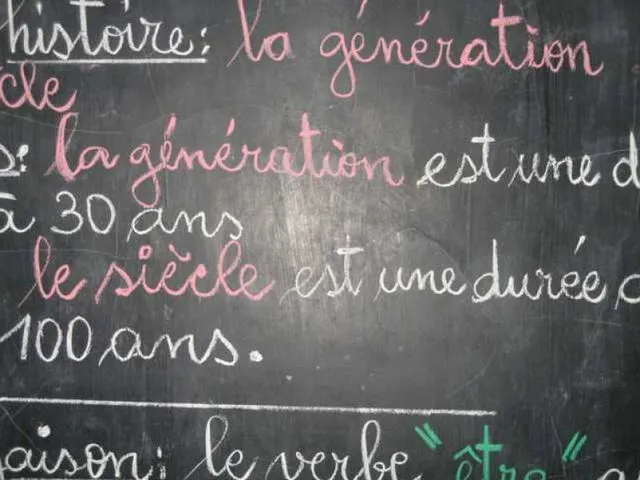 histoire: la génération
cle
s: la génération est une d
à 30 ans
le siècle est une durée d
100 ans.
aison: le verbe "être" a